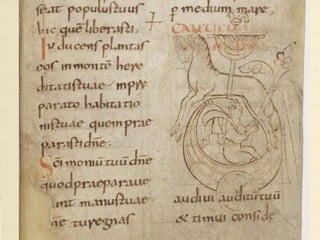 seat populustuus
hic quem̄ liberasti,
Inducens plantas
eos inmonte here
ditatistuae · inpre
parato habitatio
nistuae quem prae
parasti dn̄e:
Sc̄i monium tuū dn̄e
quod praeparave
runt manustuae
dn̄e tu regnas
p medium mare,
CANTICU
audivi auditūtuū
& timui conside